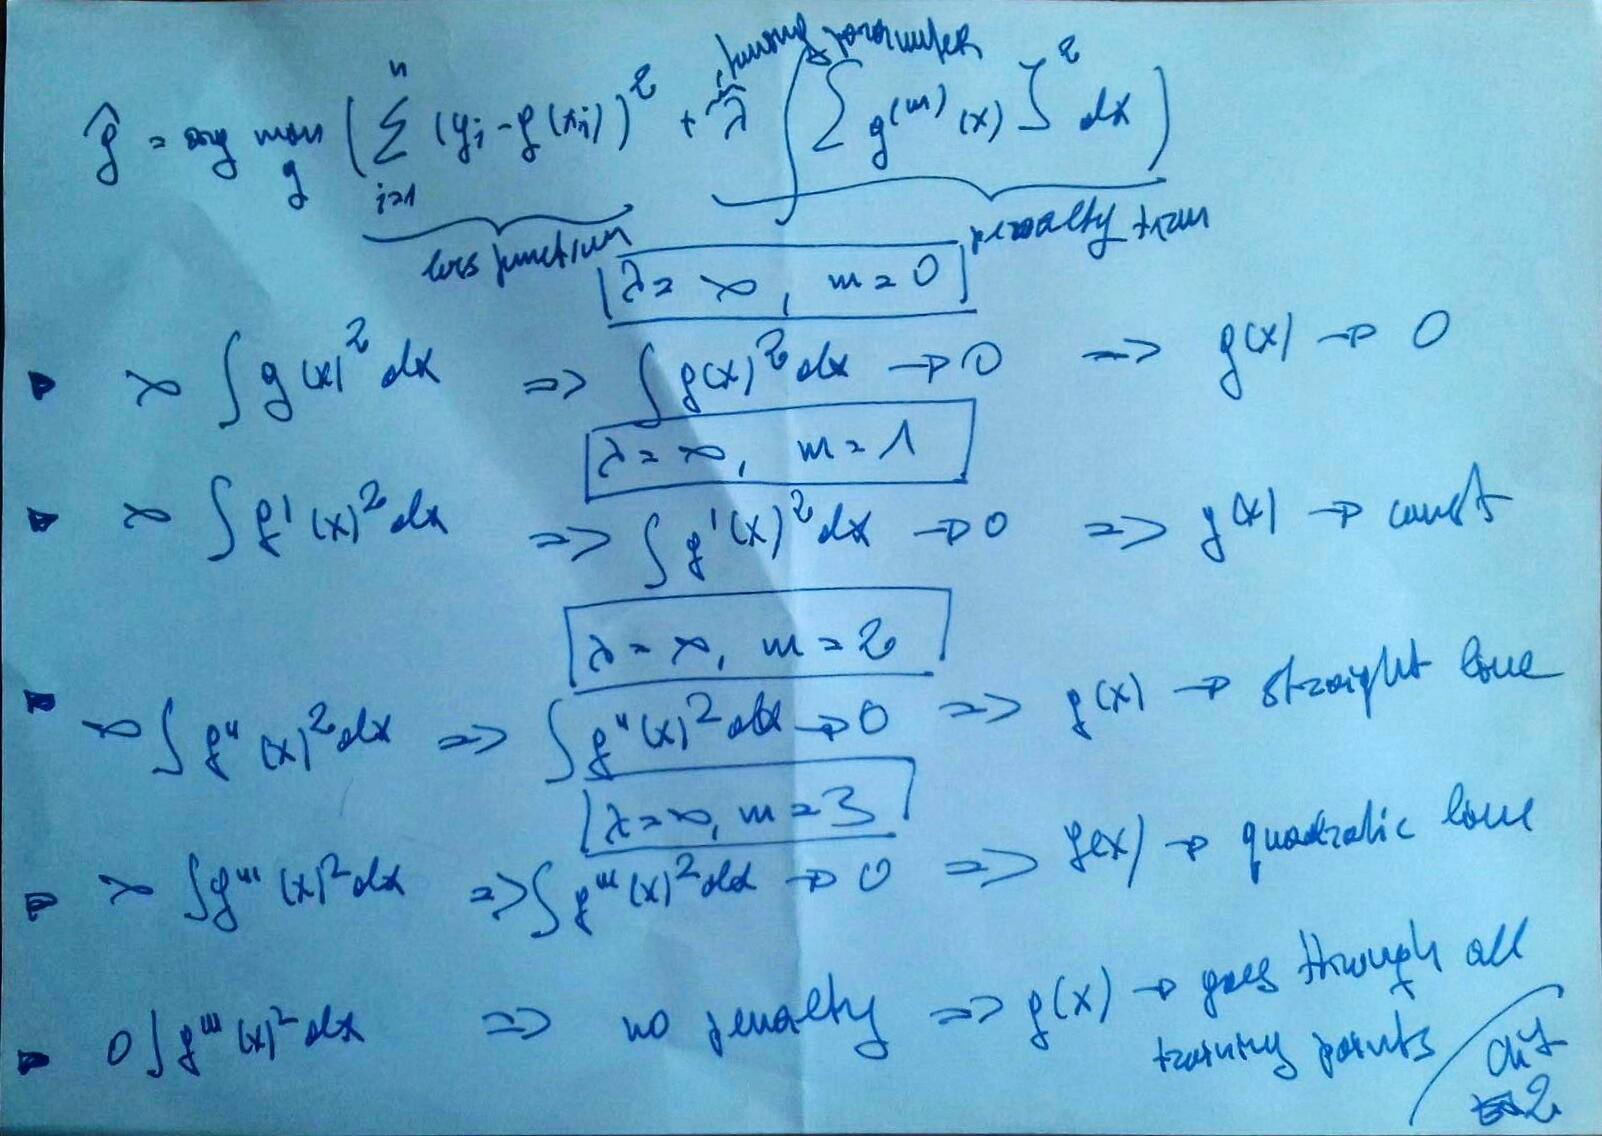 tuning parameter
ĝ = arg min_g ( Σ_{i=1}^{n} (y_i - g(x_i))² + λ ∫ [ g^(m) (x) ]² dx )
loss function
penalty term
λ = ∞, m = 0
∞ ∫ g(x)² dx => ∫ g(x)² dx → 0 => g(x) → 0
λ = ∞, m = 1
∞ ∫ g' (x)² dx => ∫ g' (x)² dx → 0 => g(x) → const
λ = ∞, m = 2
∞ ∫ g'' (x)² dx => ∫ g'' (x)² dx → 0 => g(x) → straight line
λ = ∞, m = 3
∞ ∫ g''' (x)² dx => ∫ g''' (x)² dx → 0 => g(x) → quadratic line
0 ∫ g''' (x)² dx => no penalty => g(x) → goes through all
training points
2